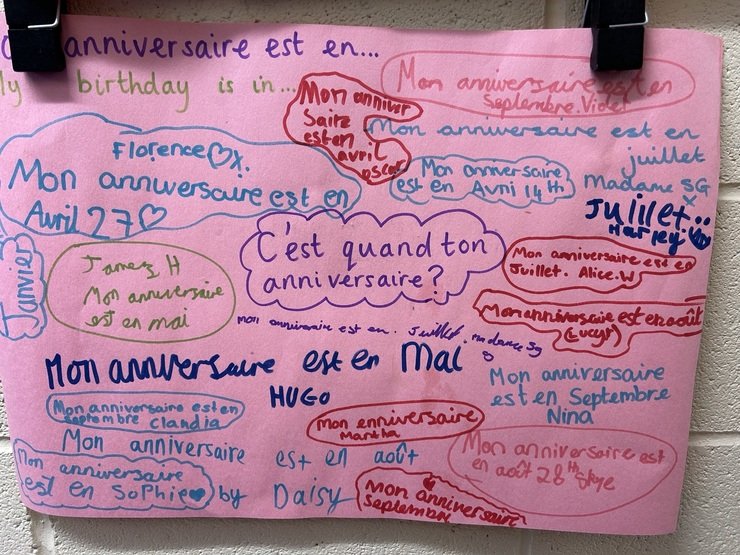 anniversaire est en...
birthday is in...
Mon anniversaire est en
Septembre.
Mon anniver
saire
est en
avril
oscar
Mon anniversaire est en
juillet
Madame SG
x
Florence♡x.
Mon anniversaire est en
Avril 27♡
Mon anniversaire
est en Avril 14th
Julilet..
Harley
Janvier
James H
Mon anniversaire
est en mai
C'est quand ton
anniversaire?
Mon anniversaire est en
Juillet. Alice.W
Mon anniversaire est en août
(Lucyr)
mon anniversaire est en. Juillet. madame Sg
Mon anniversaire est en Mai
HUGO
Mon anniversaire
est en Septembre
Nina
Mon anniversaire est en
septembre clandia
Mon enniversaire
Martha
Mon anniversaire est en août
by Daisy
Mon anniversaire
est en SoPhie
Mon anniversaire
Septembre
Mon anniversaire est
en août 28th
Skye